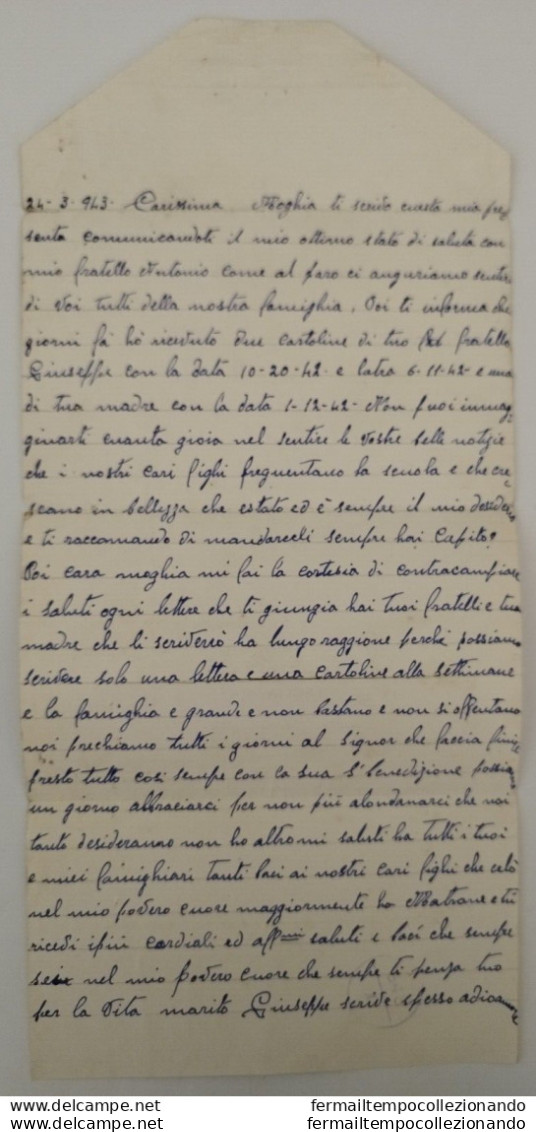 24-3-943- Carissima Moghia ti scrivo questa mia pre
senta comunicandoti il mio ottimo stato di saluta con
mio fratello Antonio come al paro ci anguriamo sentire
di Voi tutti della nostra famighia. Poi ti informa che
giorni fà hò ricevuto due cartoline di tuo fratello
Giuseppe con la data 10-20-42- e latra 6-11-42- e una
di tua madre con la data 1-12-42- Non puoi immag
ginarti cuanta gioia nel sentire le vostre belle notizie
che i nostri cari fighi frequentano la scuola e che cre
scano in bellezza che estato ed è sempre il mio desiderio
e ti raccomando di mandarceli sempre hai Capito?
Poi cara moghia mi fai la cortesia di contracampiare
i saluti ogni lettere che ti giungia hai tuoi fratelli e tua
madre che li scriverò ha lungo raggione perchè possiamo
scrivere solo una lettera e una cartoline alla settimane
e la famighia e grande e non bastano e non si offentano
noi prechiamo tutti i giorni al Signor che faccia finire
presto tutto così sempe con la sua S. benedizione possia
un giorno abbraciarci per non più alondanarci che noi
tanto desideranno non ho altro mi saluti ha tutti i tuoi
e miei famighiari tanti baci ai nostri cari fighi che celò
nel mio povero cuore maggiormente ho Matrane e tu
ricevi i più cordiali ed aff.mi saluti e baci che sempre
sei nel mio povero cuore che sempre ti penza tuo
per la Vita marito Giuseppe scrive spesso adio
fermailtempocollezionando
fermailtempocollezionando.com
fermailtempocollezionando
fermailtempocollezionando